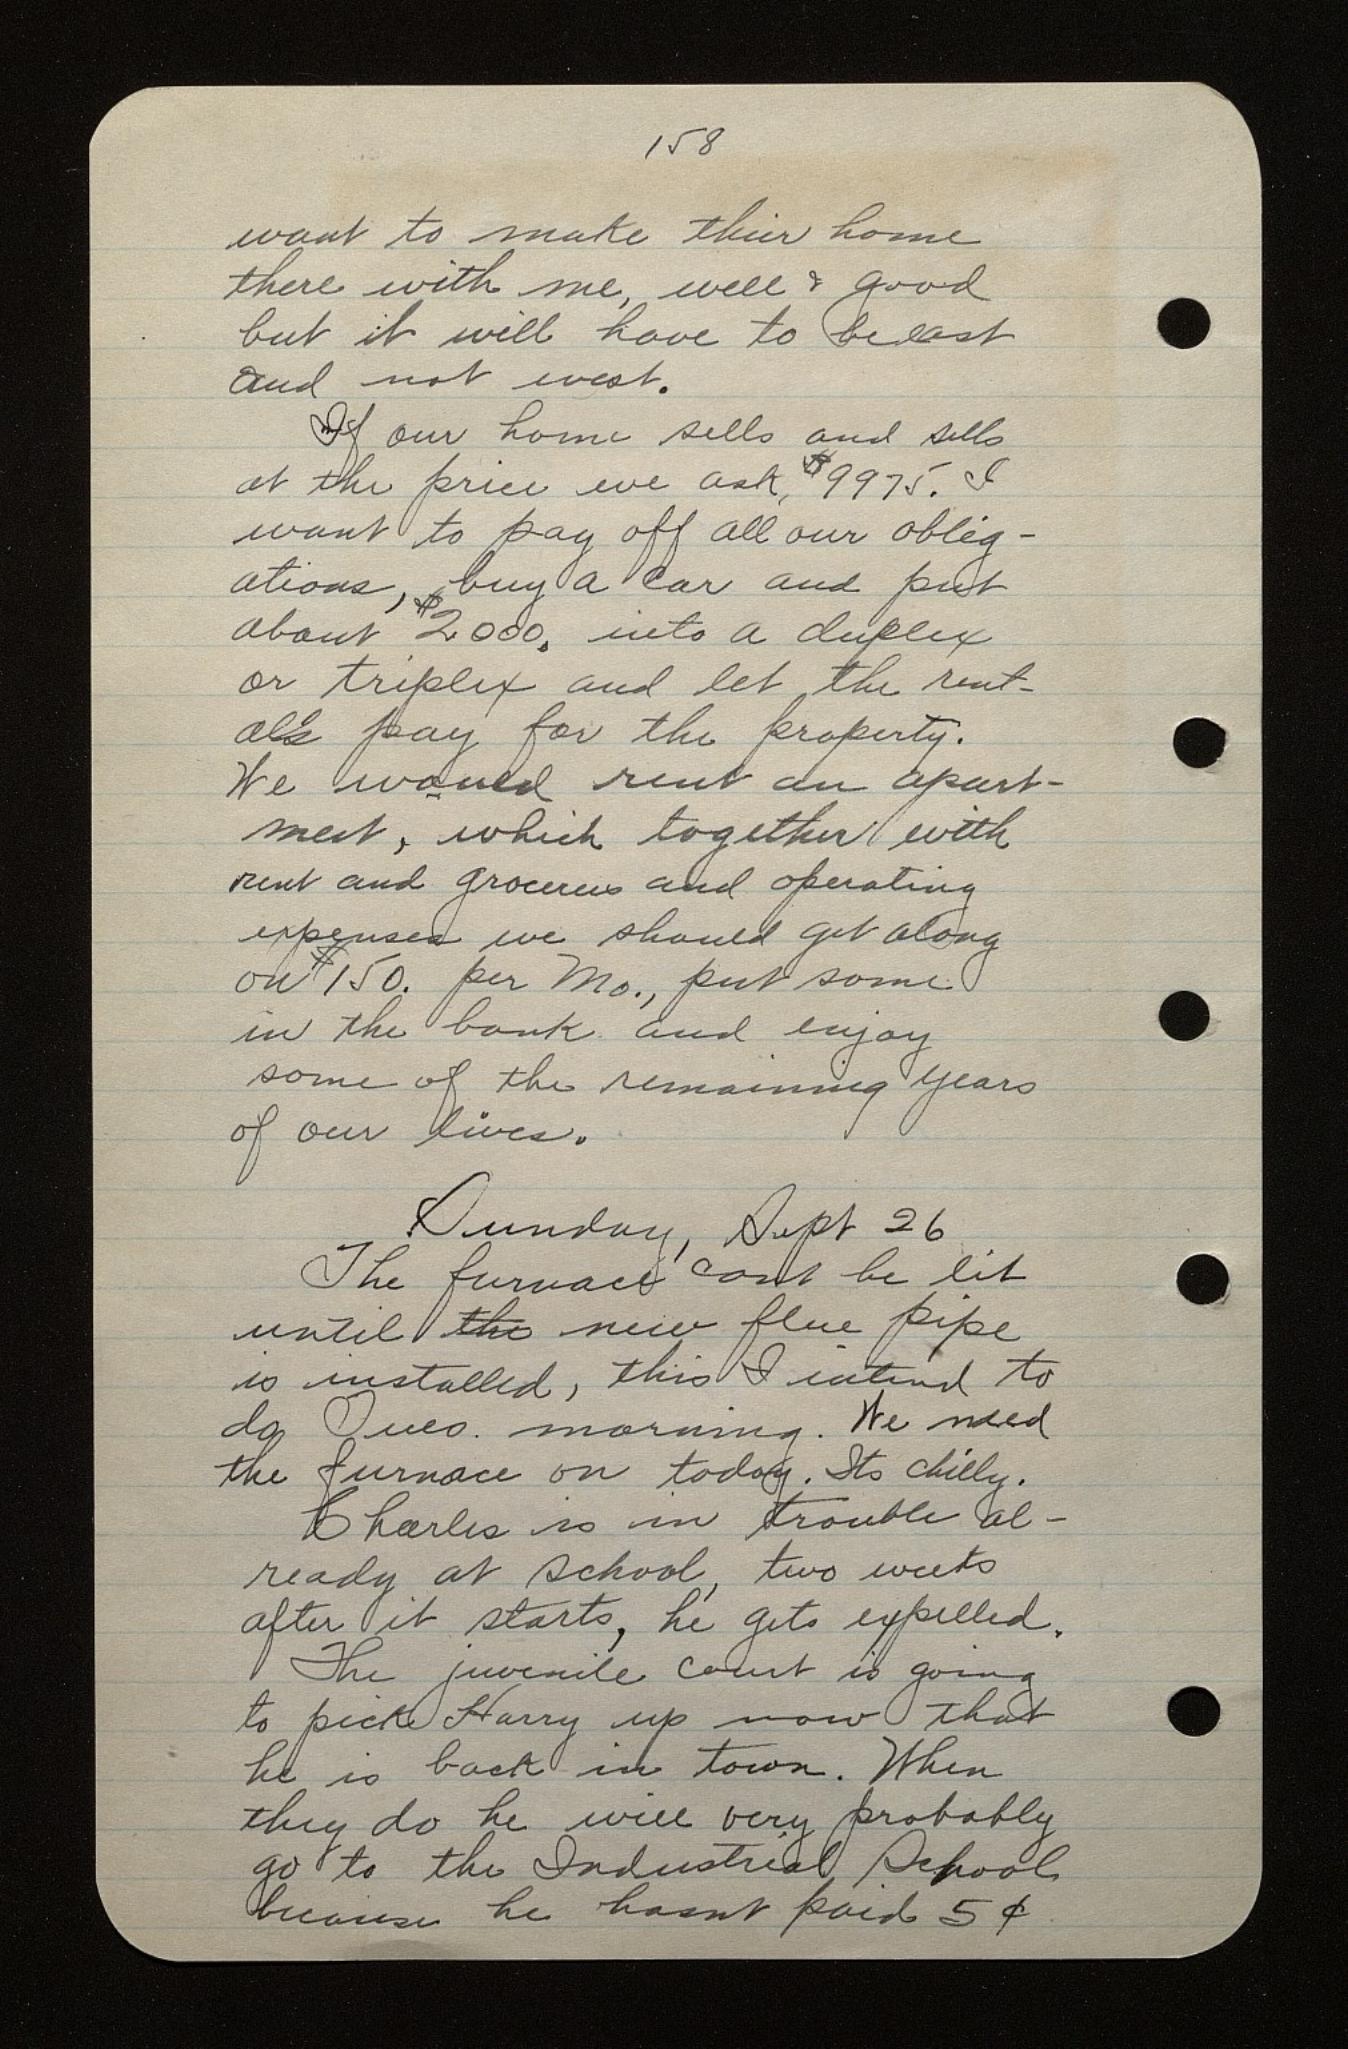 158
want to make thier home
there with me, well & good
but it will have to be east
and not west.
If our home sells and sells
at the price we ask, $9975. I
want to pay off all our oblig-
ations, buy a car and put
about $2000. into a duplex
or triplex and let the rent-
als pay for the property.
We would rent an apart-
ment, which together with
rent and groceries and operating
expenses we should get along
on $150. per Mo., put some
in the bank and enjoy
some of the remaining years
of our lives.
Sunday, Sept 26
The furnace cant be lit
until the new flue pipe
is installed, this I intend to
do Tues. morning. We need
the furnace on today. Its chilly.
Charles is in trouble al-
ready at school, two weeks
after it starts, he gets expelled.
The juvenile court is going
to pick Harry up now that
he is back in town. When
they do he will very probably
go to the Industrial School
because he hasnt paid 5¢